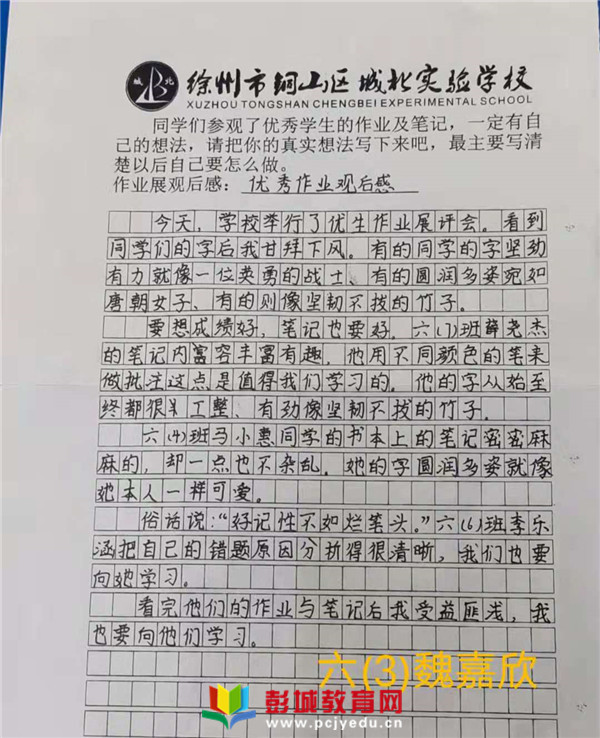 城北
徐州市铜山区城北实验学校
XUZHOU TONGSHAN CHENGBEI EXPERIMENTAL SCHOOL
同学们参观了优秀学生的作业及笔记，一定有自
己的想法，请把你的真实想法写下来吧，最主要写清
楚以后自己要怎么做。
作业展观后感：优秀作业观后感
今天，学校举行了优生作业展评会。看到
同学们的字后我甘拜下风。有的同学的字坚劲
有力就像一位英勇的战士、有的圆润多姿宛如
唐朝女子、有的则像坚韧不拔的竹子。
要想成绩好，笔记也要好。六(1)班薛老杰
的笔记内富容丰富有趣，他用不同颜色的笔来
做批注这点是值得我们学习的。他的字从始至
终都很工整、有劲像坚韧不拔的竹子。
六(4)班马小惠同学的书本上的笔记密密麻
麻的，却一点也不杂乱。她的字圆润多姿就像
她本人一样可爱。
俗话说：“好记性不如烂笔头。”六(6)班李乐
涵把自己的错题原因分析得很清晰，我们也要
向她学习。
看完他们的作业与笔记后我受益匪浅，我
也要向他们学习。
六(3)魏嘉欣
彭城教育网
www.pcjyedu.cn